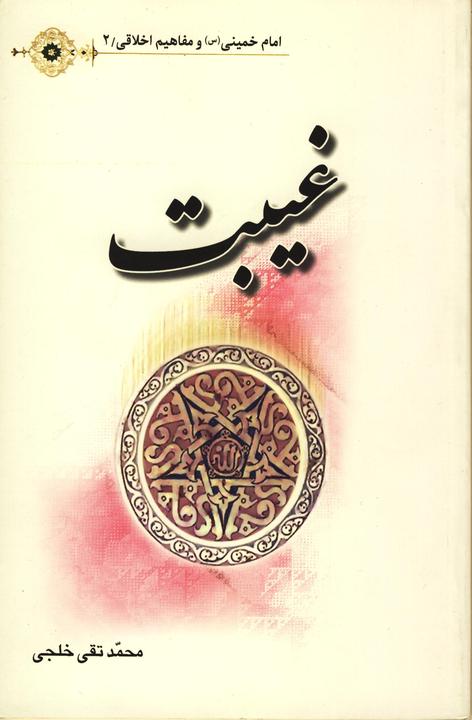 امام خمینی (س) و مفاهیم اخلاقی/۲
غیبت
الله
محمّد تقی خلجی